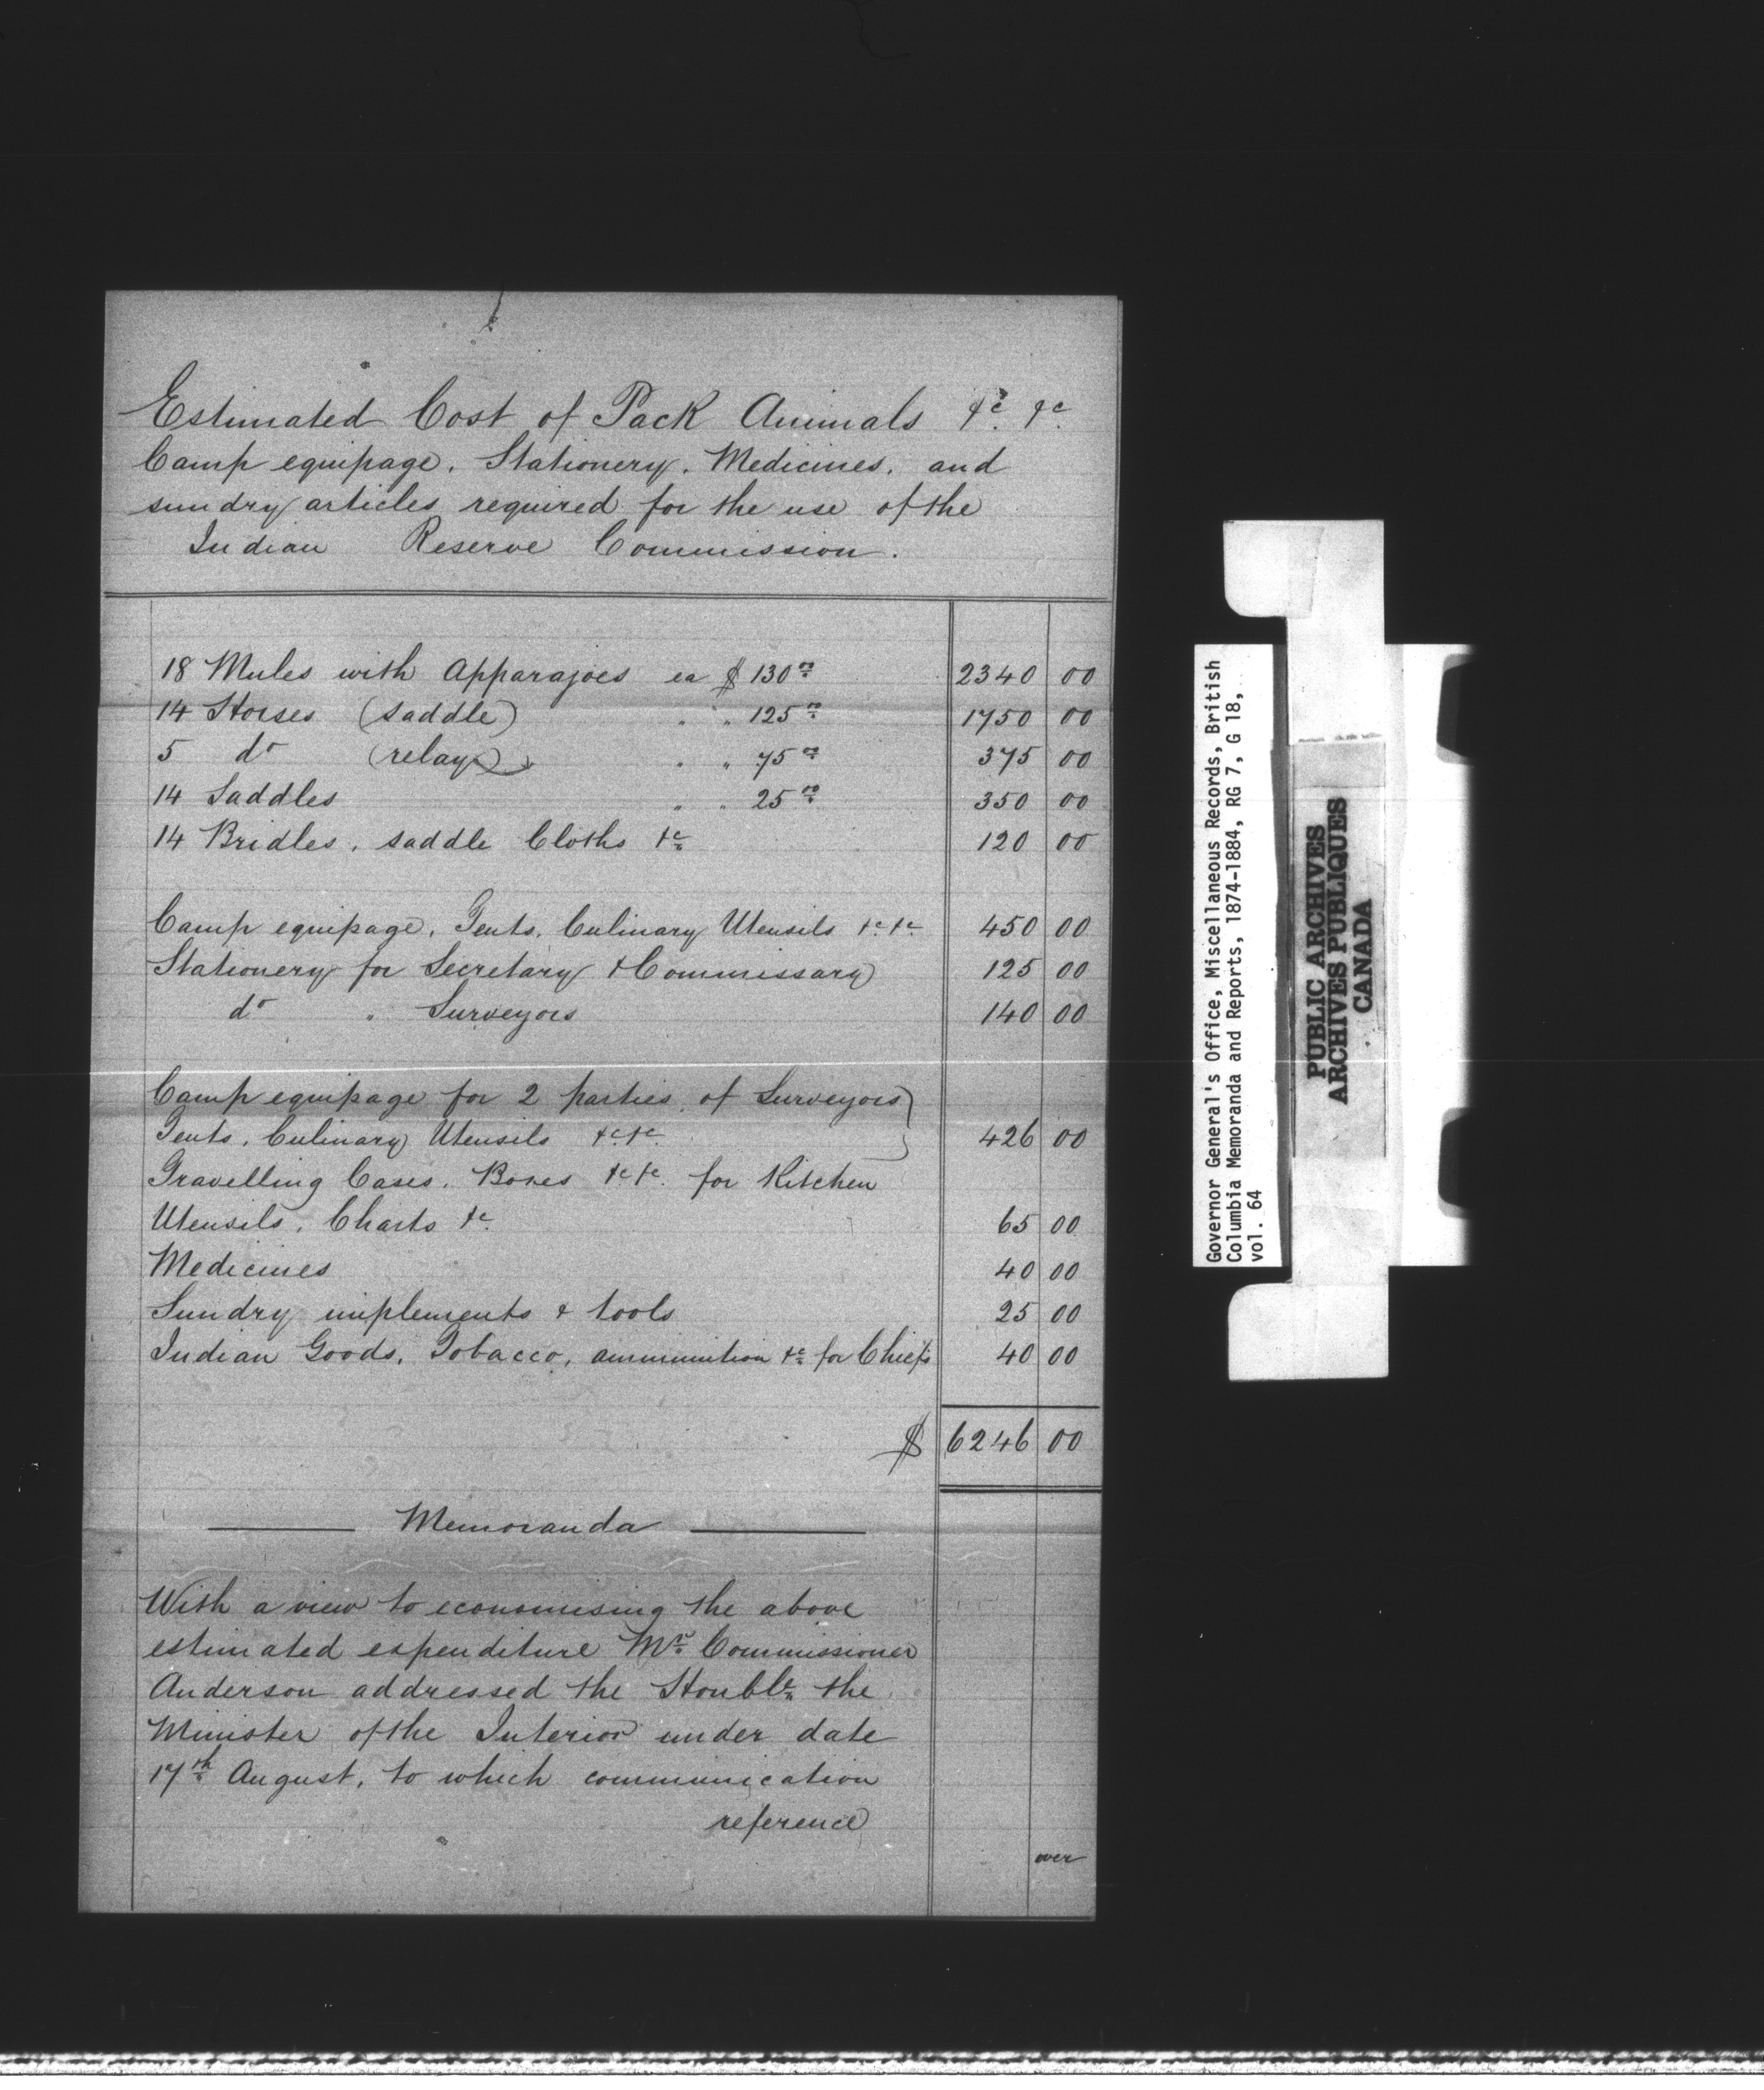 Estimated Cost of Pack Animals &c. &c.
Camp equipage, Stationery, Medicines, and
sundry articles required for the use of the
Indian Reserve Commission.
18 Mules with Apparajoes ea $130.00 2340 00
14 Horses (saddle) " " 125.00 1750 00
5 do (relay) " " 75.00 375 00
14 Saddles " " 25.00 350 00
14 Bridles, saddle Cloths &c 120 00
Camp equipage, Tents, Culinary Utensils &c. &c. 450 00
Stationery for Secretary & Commissary 125 00
do " Surveyors 140 00
Camp equipage for 2 parties of Surveyors
Tents, Culinary Utensils &c. &c. 426 00
Travelling Cases, Boxes &c &c. for Kitchen
Utensils, Charts &c. 65 00
Medicines 40 00
Sundry implements & tools 25 00
Indian Goods, Tobacco, ammunition &c for Chiefs 40 00
$ 6246 00
Memoranda
With a view to economising the above
estimated expenditure Mr. Commissioner
Anderson addressed the Honble. the
Minister of the Interior under date
17th August, to which communication
reference
over
Governor General's Office, Miscellaneous Records, British
Columbia Memoranda and Reports, 1874-1884, RG 7, G 18,
vol. 64
PUBLIC ARCHIVES
ARCHIVES PUBLIQUES
CANADA